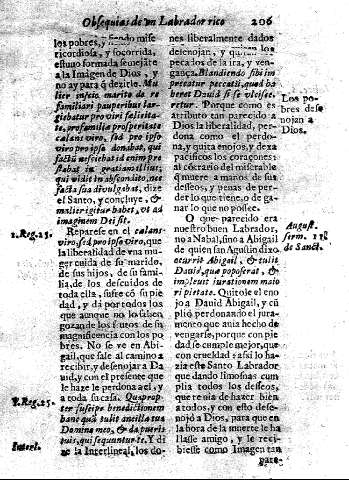 Obsequias de un Labrador rico 206
los pobres, y siendo mise
ricordiosa, y socorrida,
estuuo formada semejāte
a la Imagen de Dios, y
no ay para q̄ dezirle. Mu
lier inscio marito de re
familiari pauperibus lar
giebatur pro viri salicita
te, pro familia prosperitate
calans viro, sed pro ipso
viro pro ipso donabat, qui
factū nesciebat id enim pre
stabat in gratiam illius;
qui vidit in abscondito, nec
facta sua divulgabat, dize
el Santo, y concluye, &
mulier igitur habet, ut ad
imaginem Dei sit.
Reparese en el calans
viro, sed pro ipso viro, que
la liberalidad de vna mu
ger cuida de su marido,
de sus hijos, de su fami
lia, de los descuidos de
toda ella, sufre cō su pie
dad, y dà por todos los
que aunque no lo saben
gozan de los frutos de su
magnificencia con los po
bres. No se ve en Abi
gail, que sale al camino a
recibir, y desenojar a Da
uid, y con el presente que
le haze le perdona a el, y
a toda su casa. Quapropter
suscipe benedictionem
hanc quā tulit ancilla tua
Domine meo, & da pueris
tuis, qui sequuntur te. Y di
ze la Interlineal, los do-
1. Reg. 25.
1. Reg. 25.
Interl.
nes liberalmente dados
desenojan, y quitan los
pecados de la ira, y ven-
gança. Blandiendo sibi im
precatur peccati, quod ha
beret David si se vlcisce-
retur. Porque como es
atributo tan parecido a
Dios la liberalidad, per-
dona como el perdo-
na, y quita enojos, y dexa
pacificos los coraçones:
al cōtrario del miserable
q̄ muere a manos de sus
desseos, y penas de per-
der lo que tiene, o de ga-
nar lo que no posee.
O que parecido era
nuestro buen Labrador,
no a Nabal, sino a Abigail
de quien san Agustin dizo
ocurrit Abigail, & tulit
David, quæ poposerat, &
impleuit iurationem maio
ri pietate. Quitole el eno
jo a Dauid Abigail, y cū
pliò perdonando el jura-
mento que auia hecho de
vengarse, porque con pie
dad se cumple mejor, que
con crueldad: assi lo ha-
zia este Santo Labrador
que dando limosnas cum
plia todos los desseos,
que tenia de hazer bien
a todos, y con esto dese-
nojò a Dios, para que en
la hora de la muerte le ha
llasse amigo, y le reci-
biesse como Imagen tan
pare-
Los po-
bres dese
nojan a
Dios.
August.
serm.
de Sanct.